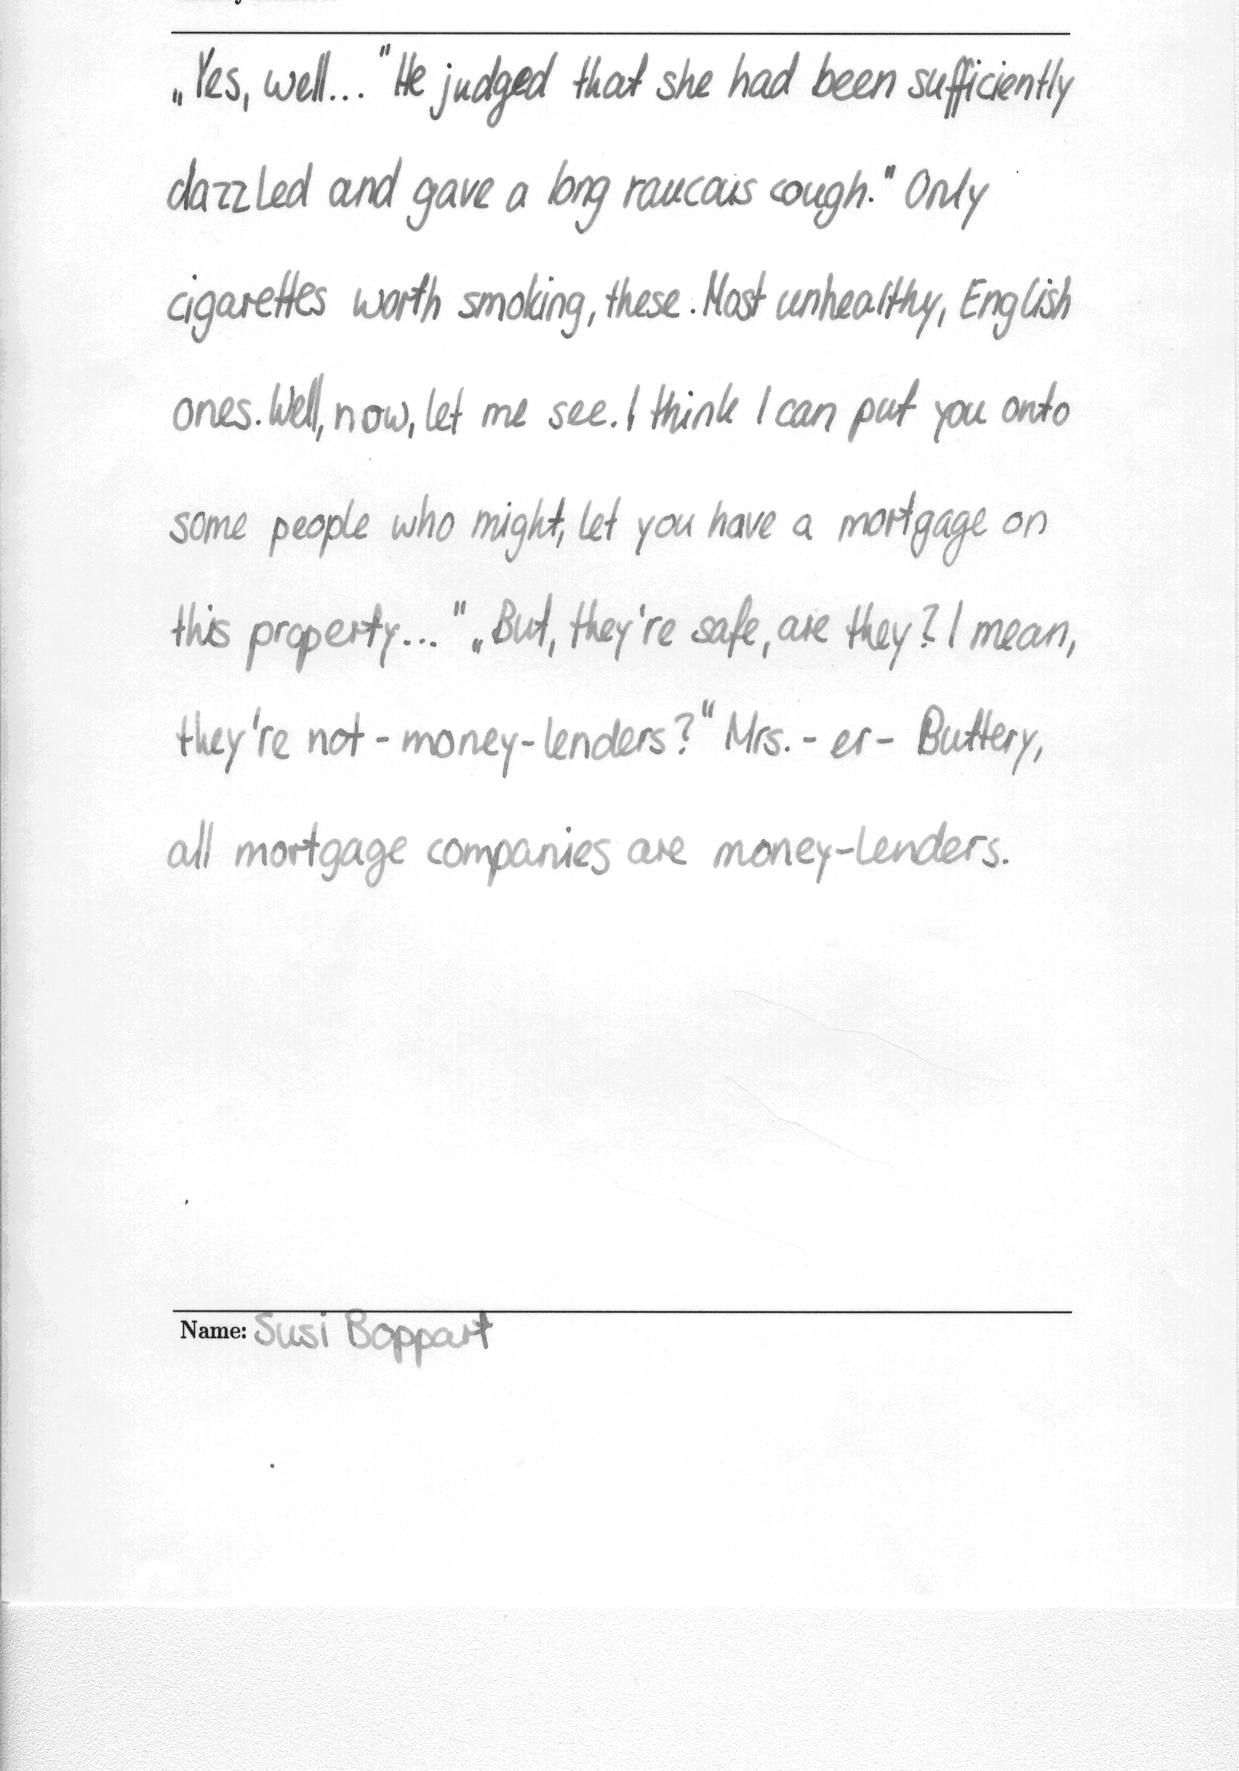 „Yes, well... "He judged that she had been sufficiently
dazzled and gave a long raucous cough." Only
cigarettes worth smoking, these. Most unhealthy, English
ones. Well, now, let me see. I think I can put you onto
some people who might, let you have a mortgage on
this property... " „But, they're safe, are they? I mean,
they're not - money-lenders?" Mrs. - er - Buttery,
all mortgage companies are money-lenders.
Name: Susi Boppart